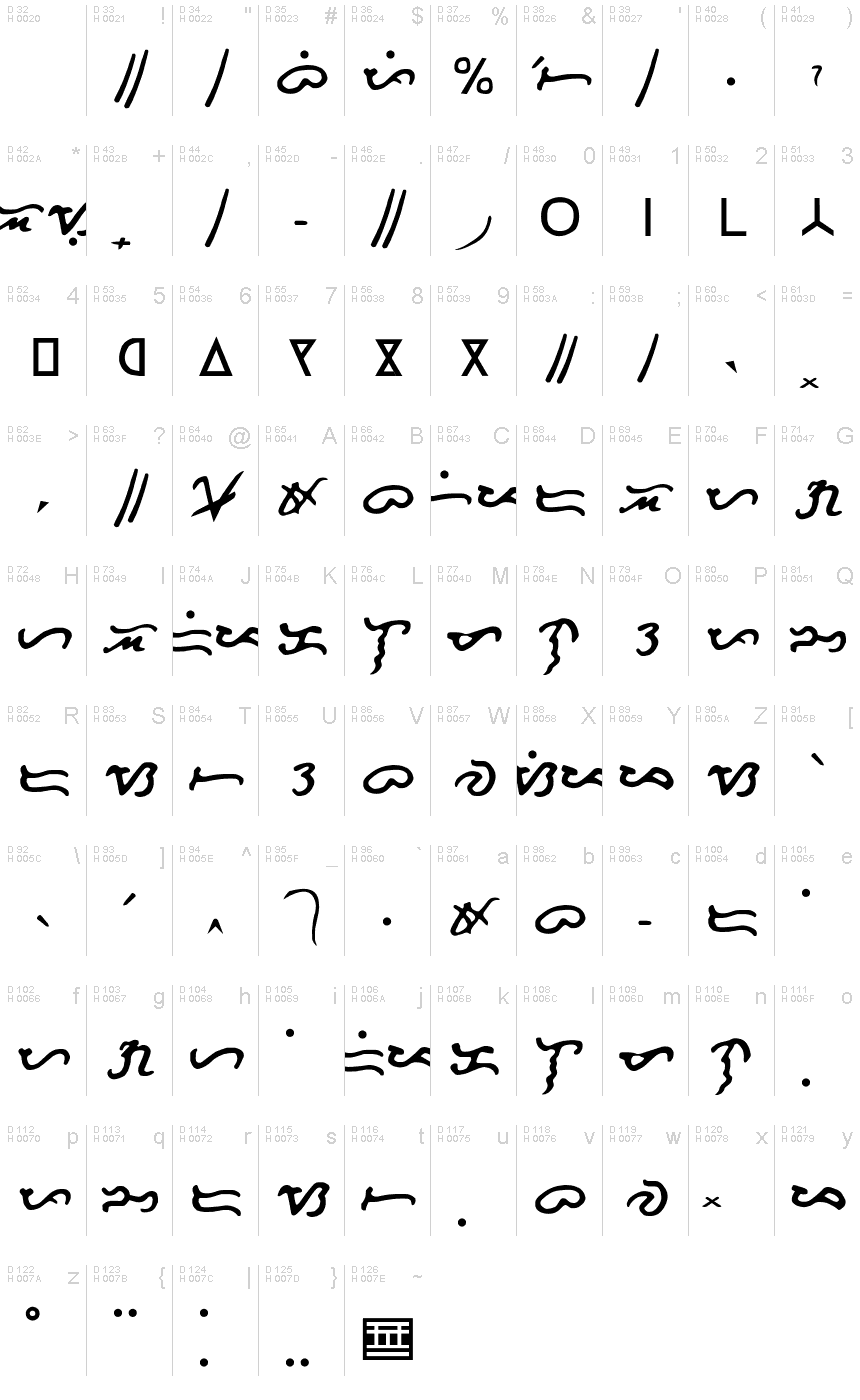 D 32 D 33 ! D 34 " D 35 # D 36 $ D 37 % D 38 & D 39 ' D 40 ( D 41 )
H 0020 H 0021 H 0022 H 0023 H 0024 H 0025 H 0026 H 0027 H 0028 H 0029
᜶ ᜵ ᜊᜒ ᜉᜒ % ᜵ •
D 42 * D 43 + D 44 , D 45 - D 46 . D 47 / D 48 0 D 49 1 D 50 2 D 51 3
H 002A H 002B H 002C H 002D H 002E H 002F H 0030 H 0031 H 0032 H 0033
+ ᜵ - ᜶ O I L ⅄
D 52 4 D 53 5 D 54 6 D 55 7 D 56 8 D 57 9 D 58 : D 59 ; D 60 < D 61 =
H 0034 H 0035 H 0036 H 0037 H 0038 H 0039 H 003A H 003B H 003C H 003D
᜶ ᜵ ×
D 62 > D 63 ? D 64 @ D 65 A D 66 B D 67 C D 68 D D 69 E D 70 F D 71 G
H 003E H 003F H 0040 H 0041 H 0042 H 0043 H 0044 H 0045 H 0046 H 0047
᜶ ᜀ ᜊ ᜆᜒᜌ ᜇ ᜁ ᜉ ᜄ
D 72 H D 73 I D 74 J D 75 K D 76 L D 77 M D 78 N D 79 O D 80 P D 81 Q
H 0048 H 0049 H 004A H 004B H 004C H 004D H 004E H 004F H 0050 H 0051
ᜑ ᜁ ᜇᜒᜌ ᜃ ᜎ ᜋ ᜈ ᜂ ᜉ ᜅ
D 82 R D 83 S D 84 T D 85 U D 86 V D 87 W D 88 X D 89 Y D 90 Z D 91 [
H 0052 H 0053 H 0054 H 0055 H 0056 H 0057 H 0058 H 0059 H 005A H 005B
ᜇ ᜐ ᜆ ᜂ ᜊ ᜏ ᜐᜒᜌ ᜌ ᜐ
D 92 \ D 93 ] D 94 ^ D 95 _ D 96 ` D 97 a D 98 b D 99 c D 100 d D 101 e
H 005C H 005D H 005E H 005F H 0060 H 0061 H 0062 H 0063 H 0064 H 0065
• ᜀ ᜊ - ᜇ •
D 102 f D 103 g D 104 h D 105 i D 106 j D 107 k D 108 l D 109 m D 110 n D 111 o
H 0066 H 0067 H 0068 H 0069 H 006A H 006B H 006C H 006D H 006E H 006F
ᜉ ᜄ ᜑ • ᜇᜒᜌ ᜃ ᜎ ᜋ ᜈ •
D 112 p D 113 q D 114 r D 115 s D 116 t D 117 u D 118 v D 119 w D 120 x D 121 y
H 0070 H 0071 H 0072 H 0073 H 0074 H 0075 H 0076 H 0077 H 0078 H 0079
ᜉ ᜅ ᜇ ᜐ ᜆ • ᜊ ᜏ × ᜌ
D 122 z D 123 { D 124 | D 125 } D 126 ~
H 007A H 007B H 007C H 007D H 007E